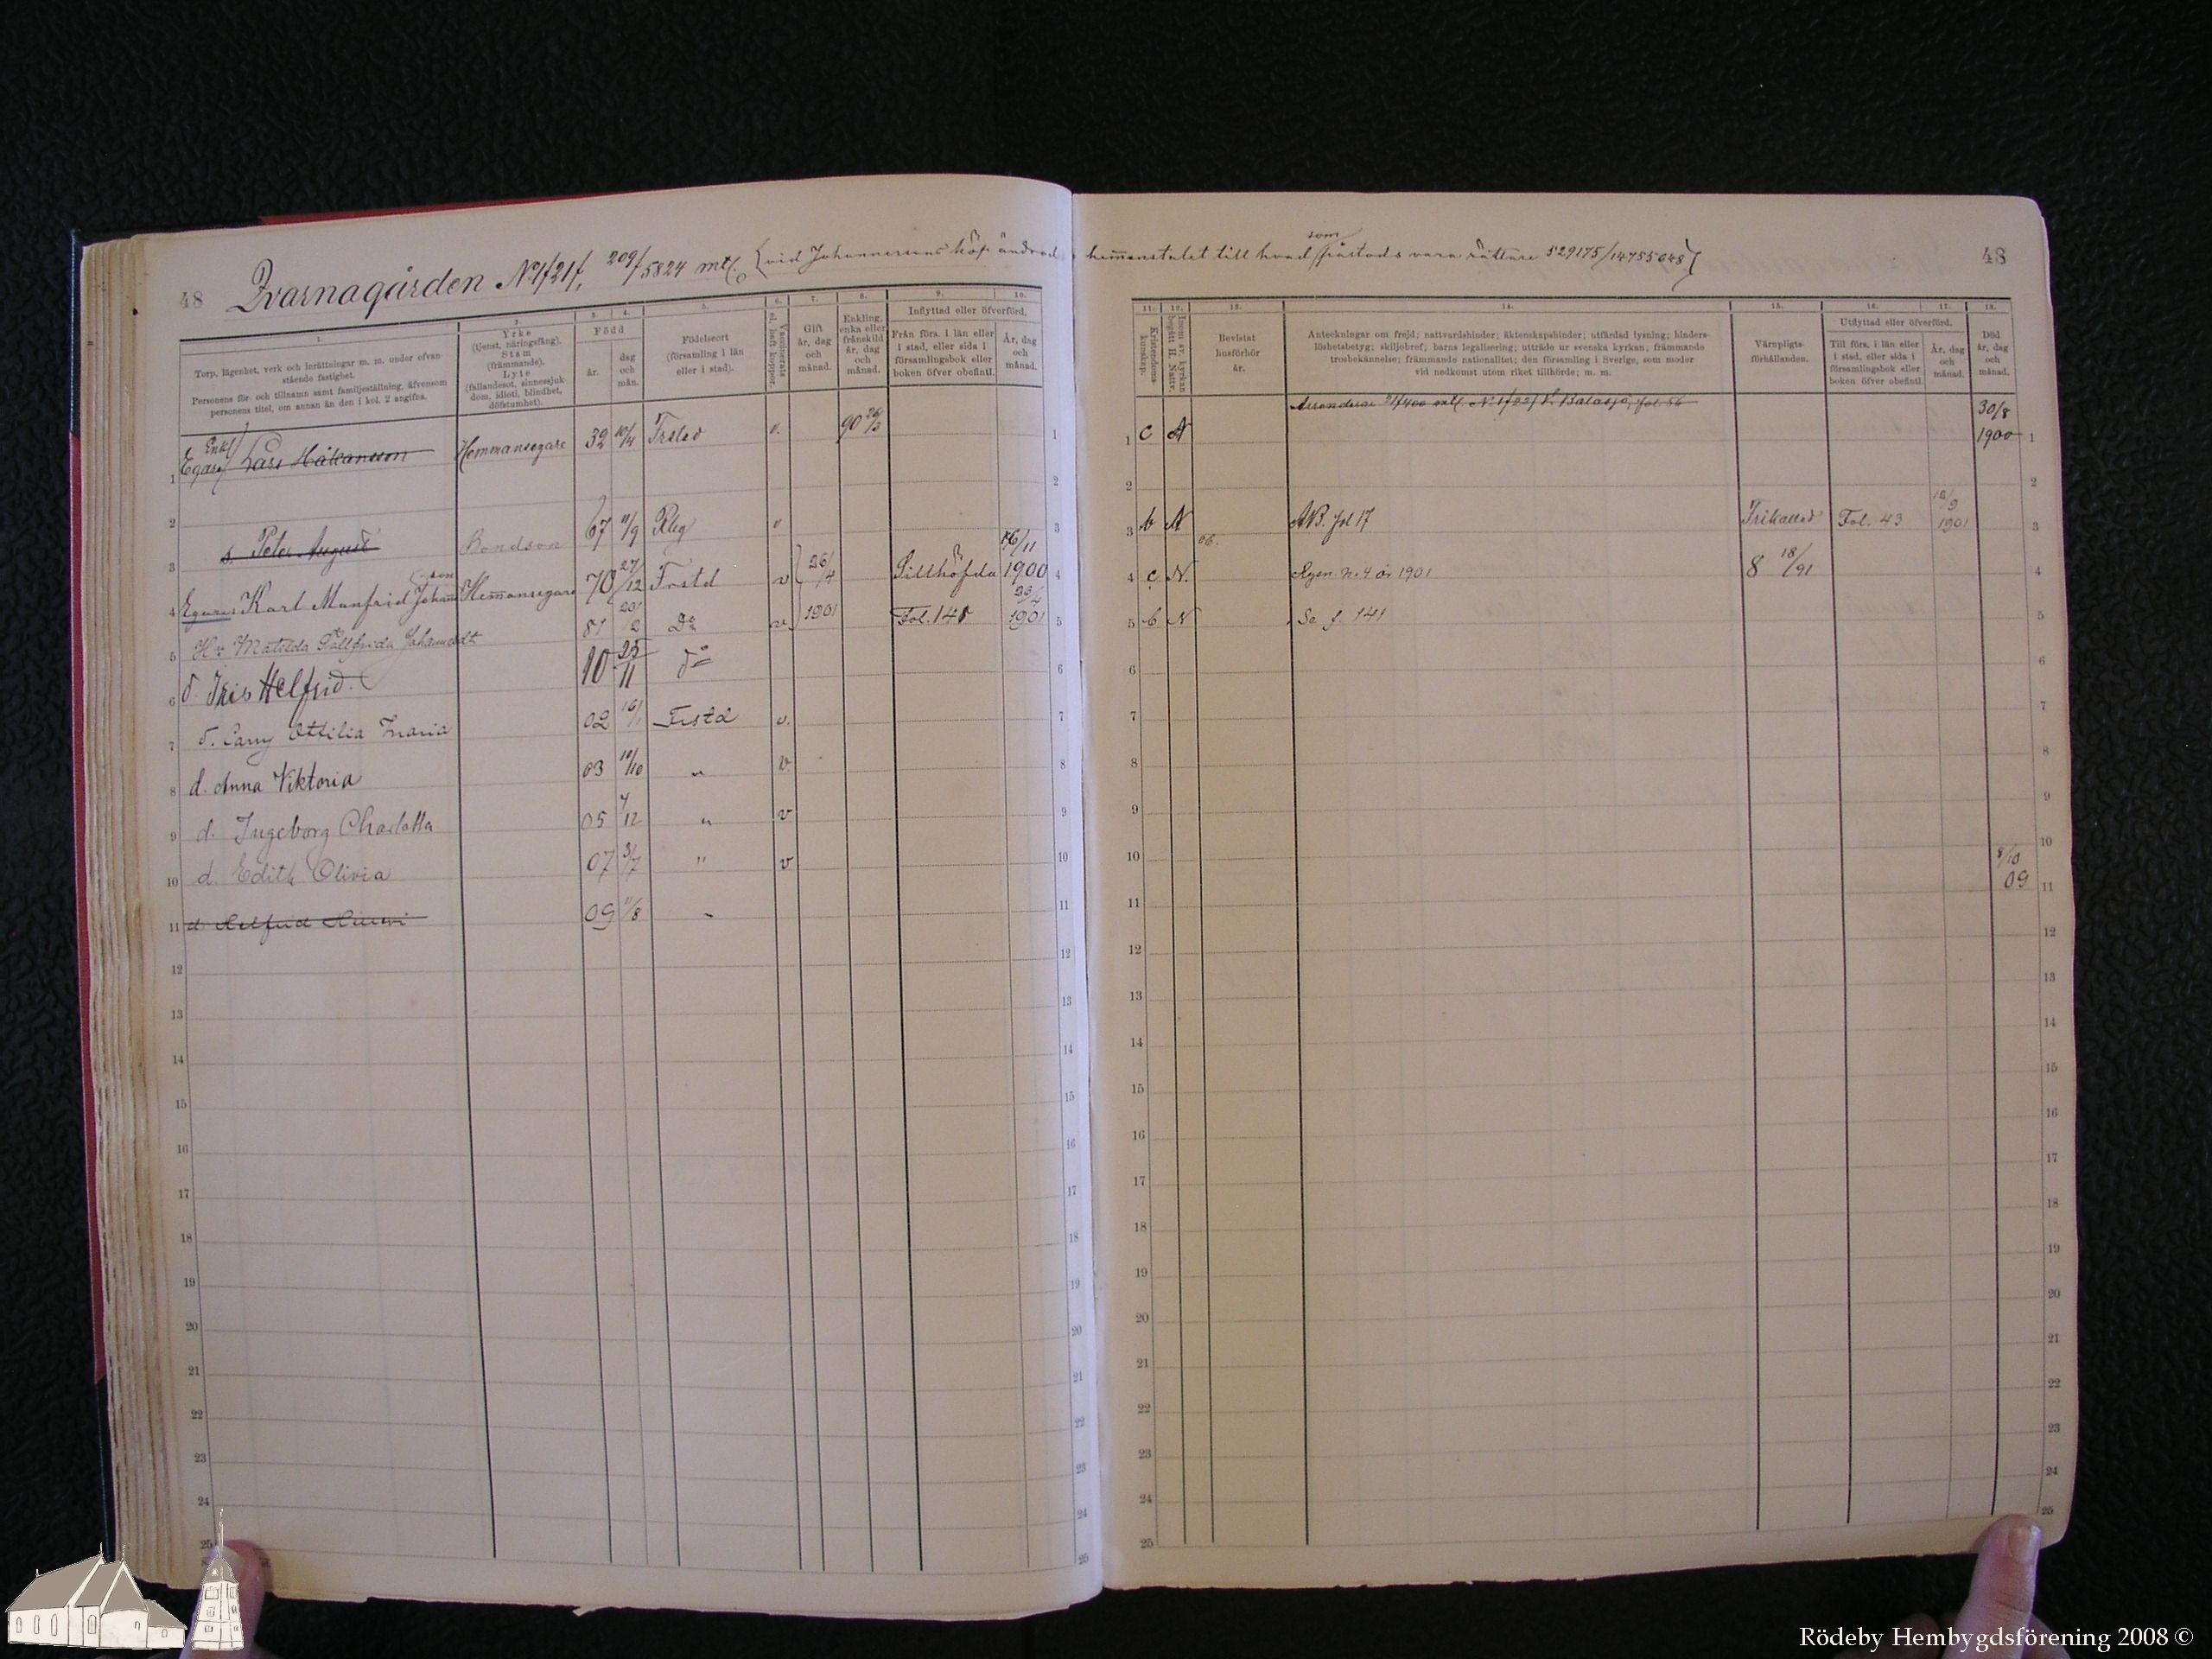 48 Qvarnagården No 1/21/, 209/5824 mtl. {vid Johannessons köp ändrad hemmanstalet till hvad som påstods vara rättare 529175/14755648} 48
1. 2. 3. 4. 5. 6. 7. 8. 9. 10. 11. 12. 13. 14. 15. 16. 17. 18.
Torp, lägenhet, verk och inrättningar m. m. under ofvanstående fastighet.
Personens för- och tillnamn samt familjeställning, äfvensom personens titel, om annan än den i kol. 2 angifna.
Yrke (tjenst, näringsfång). Stam (främmande). Lyte (fallandesot, sinnessjukdom, idioti, blindhet, döfstumhet).
Född
år. dag och mån.
Födelseort (församling i län eller i stad).
Vaccinerats el. haft koppor.
Gift år, dag och månad.
Enkling, enka eller frånskild år, dag och månad.
Inflyttad eller öfverförd.
Från förs. i län eller i stad, eller sida i församlingsbok eller boken öfver obefintl.
År, dag och månad.
Kristendomskunskap.
Inom sv. kyrkan begått H. Nattv.
Bevistat husförhör år.
Anteckningar om frejd; nattvardshinder; äktenskapshinder; utfärdad lysning; hinderslöshetsbetyg; skiljobref; barns legalisering; utträde ur svenska kyrkan; främmande trosbekännelse; främmande nationalitet; den församling i Sverige, som moder vid nedkomst utom riket tillhörde; m. m.
Värnpligtsförhållanden.
Utflyttad eller öfverförd.
Till förs. i län eller i stad, eller sida i församlingsbok eller boken öfver obefintl.
År, dag och månad.
Död år, dag och månad.
1 Enkl. Egare Lars Håkansson Hemmansegare 32 10/4 Frstad v. 90 26/3 1 c A 30/8 1900
3 s. Peter August Bondson 67 11/9 Rby v 3 b A 06. AB. fol 17 Frikallad Fol. 43 1901
4 Egare Karl Manfrid Johannesson Hemmansegare 70 27/12 Frstd v 26/4 1901 Sillhöfda 16/11 1900 4 c N. Egen. n. 4 år 1901 8 18/91
5 H u Matilda Fällfrida Johannesdt 81 20/2 Do v Fol. 148 1901 5 b N Se f. 141
6 d. Iris Helfrid. 10 25/11 do
7 d. Camy Ottilia Maria 02 16/1 Frstd v.
8 d. Anna Viktoria 03 10/10 " v
9 d. Ingeborg Charlotta 05 4/12 " v
10 d. Edith Olivia 07 3/7 " v
11 d. Helfrid 09 11/8 " 8/10 09
12
13
14
15
16
17
18
19
20
21
22
23
24
25
Rödeby Hembygdsförening 2008 ©